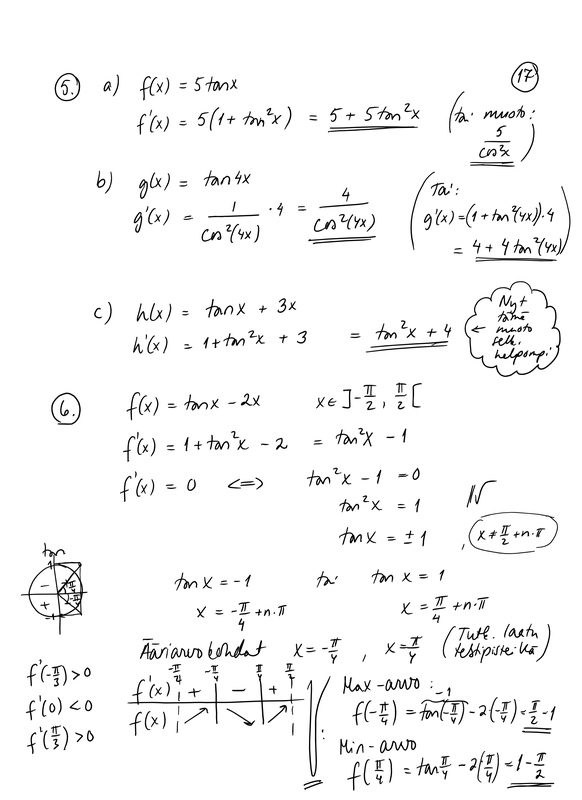 17
5. a) f(x) = 5tanx
f'(x) = 5(1+tan²x) = 5+5tan²x (tai muoto: 5/cos²x)
b) g(x) = tan4x
g'(x) = 1/cos²(4x) · 4 = 4/cos²(4x)
(Tai:
g'(x) = (1+tan²(4x))·4
= 4+4tan²(4x))
c) h(x) = tanx + 3x
h'(x) = 1+tan²x + 3 = tan²x + 4
← Nyt
tämä
muoto
selk.
helpompi
6. f(x) = tanx - 2x x∈]-π/2, π/2[
f'(x) = 1+tan²x - 2 = tan²x - 1
f'(x) = 0 <=> tan²x - 1 = 0
tan²x = 1 ||√
tanx = ±1 , x≠π/2+n·π
tan
1
-
+
π/4
-π/4
-1
tanx = -1 tai tanx = 1
x = -π/4+n·π x = π/4+n·π
Ääriarvokohdat x=-π/4 , x=π/4 (Tutk. laatu
testipisteikä)
f'(-π/3)>0
f'(0)<0
f'(π/3)>0
-π/4 π/4
f'(x) + - +
f(x) ↗ ↘ ↗
Max-arvo:
f(-π/4) = tan(-π/4) - 2(-π/4) = π/2-1
-1
Min-arvo:
f(π/4) = tanπ/4 - 2(π/4) = 1-π/2